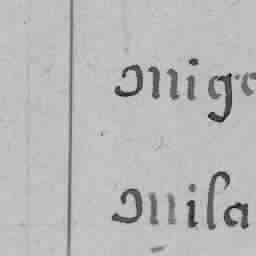 Mige
Mila